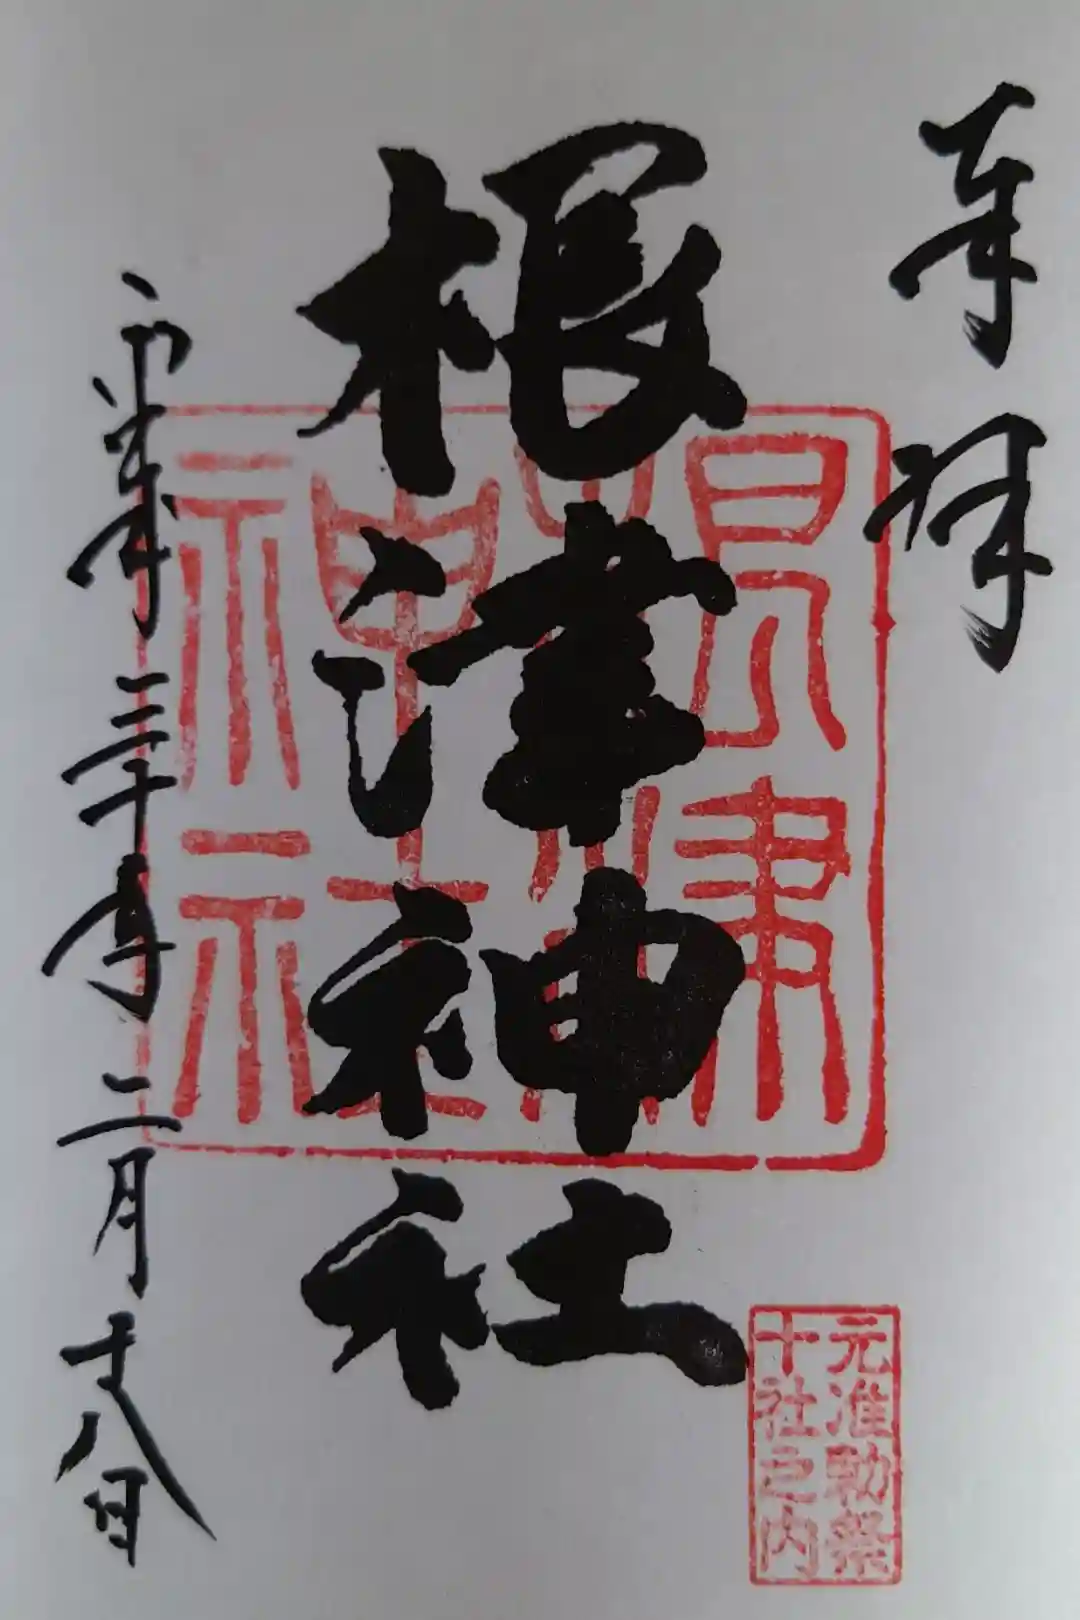 奉拝
根津神社
根津
神社
元准勅祭
十社之内
平成三十年二月十八日